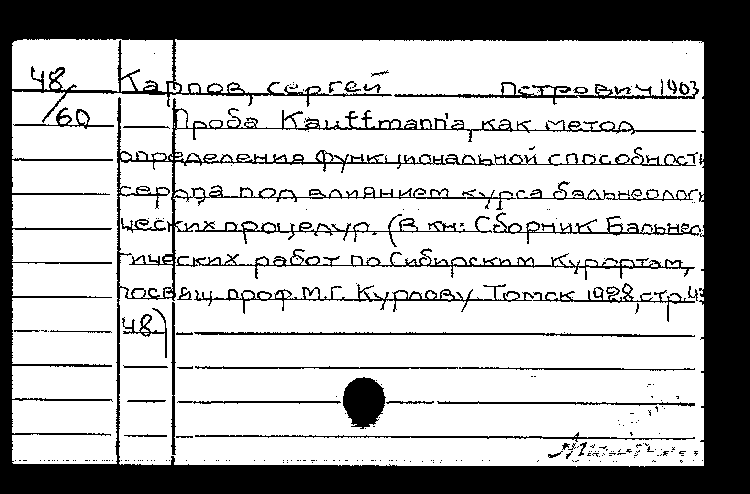 48/60 Карпов, Сергей Петрович 1903
Проба Kauffmann'a, как метод
определения функциональной способности
сердца под влиянием курса бальнеологи
ческих процедур. (В кн: Сборник Бальнео
гических работ по Сибирским Курортам,
посвящ. проф. М.Г. Курлову Томск 1928, стр. 43
48)